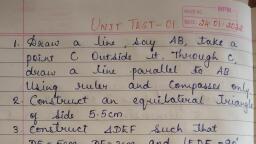 UNIT TEST-01
DATE: 24-01-2022
1. Draw a line, say AB, take a
point C outside it. Through C,
draw a line parallel to AB
Using ruler and compasses only
2. Construct an equilateral Triangle
of side 5.5cm
3 Construct ∆DEF such that
DE = 5cm DF = 3cm and